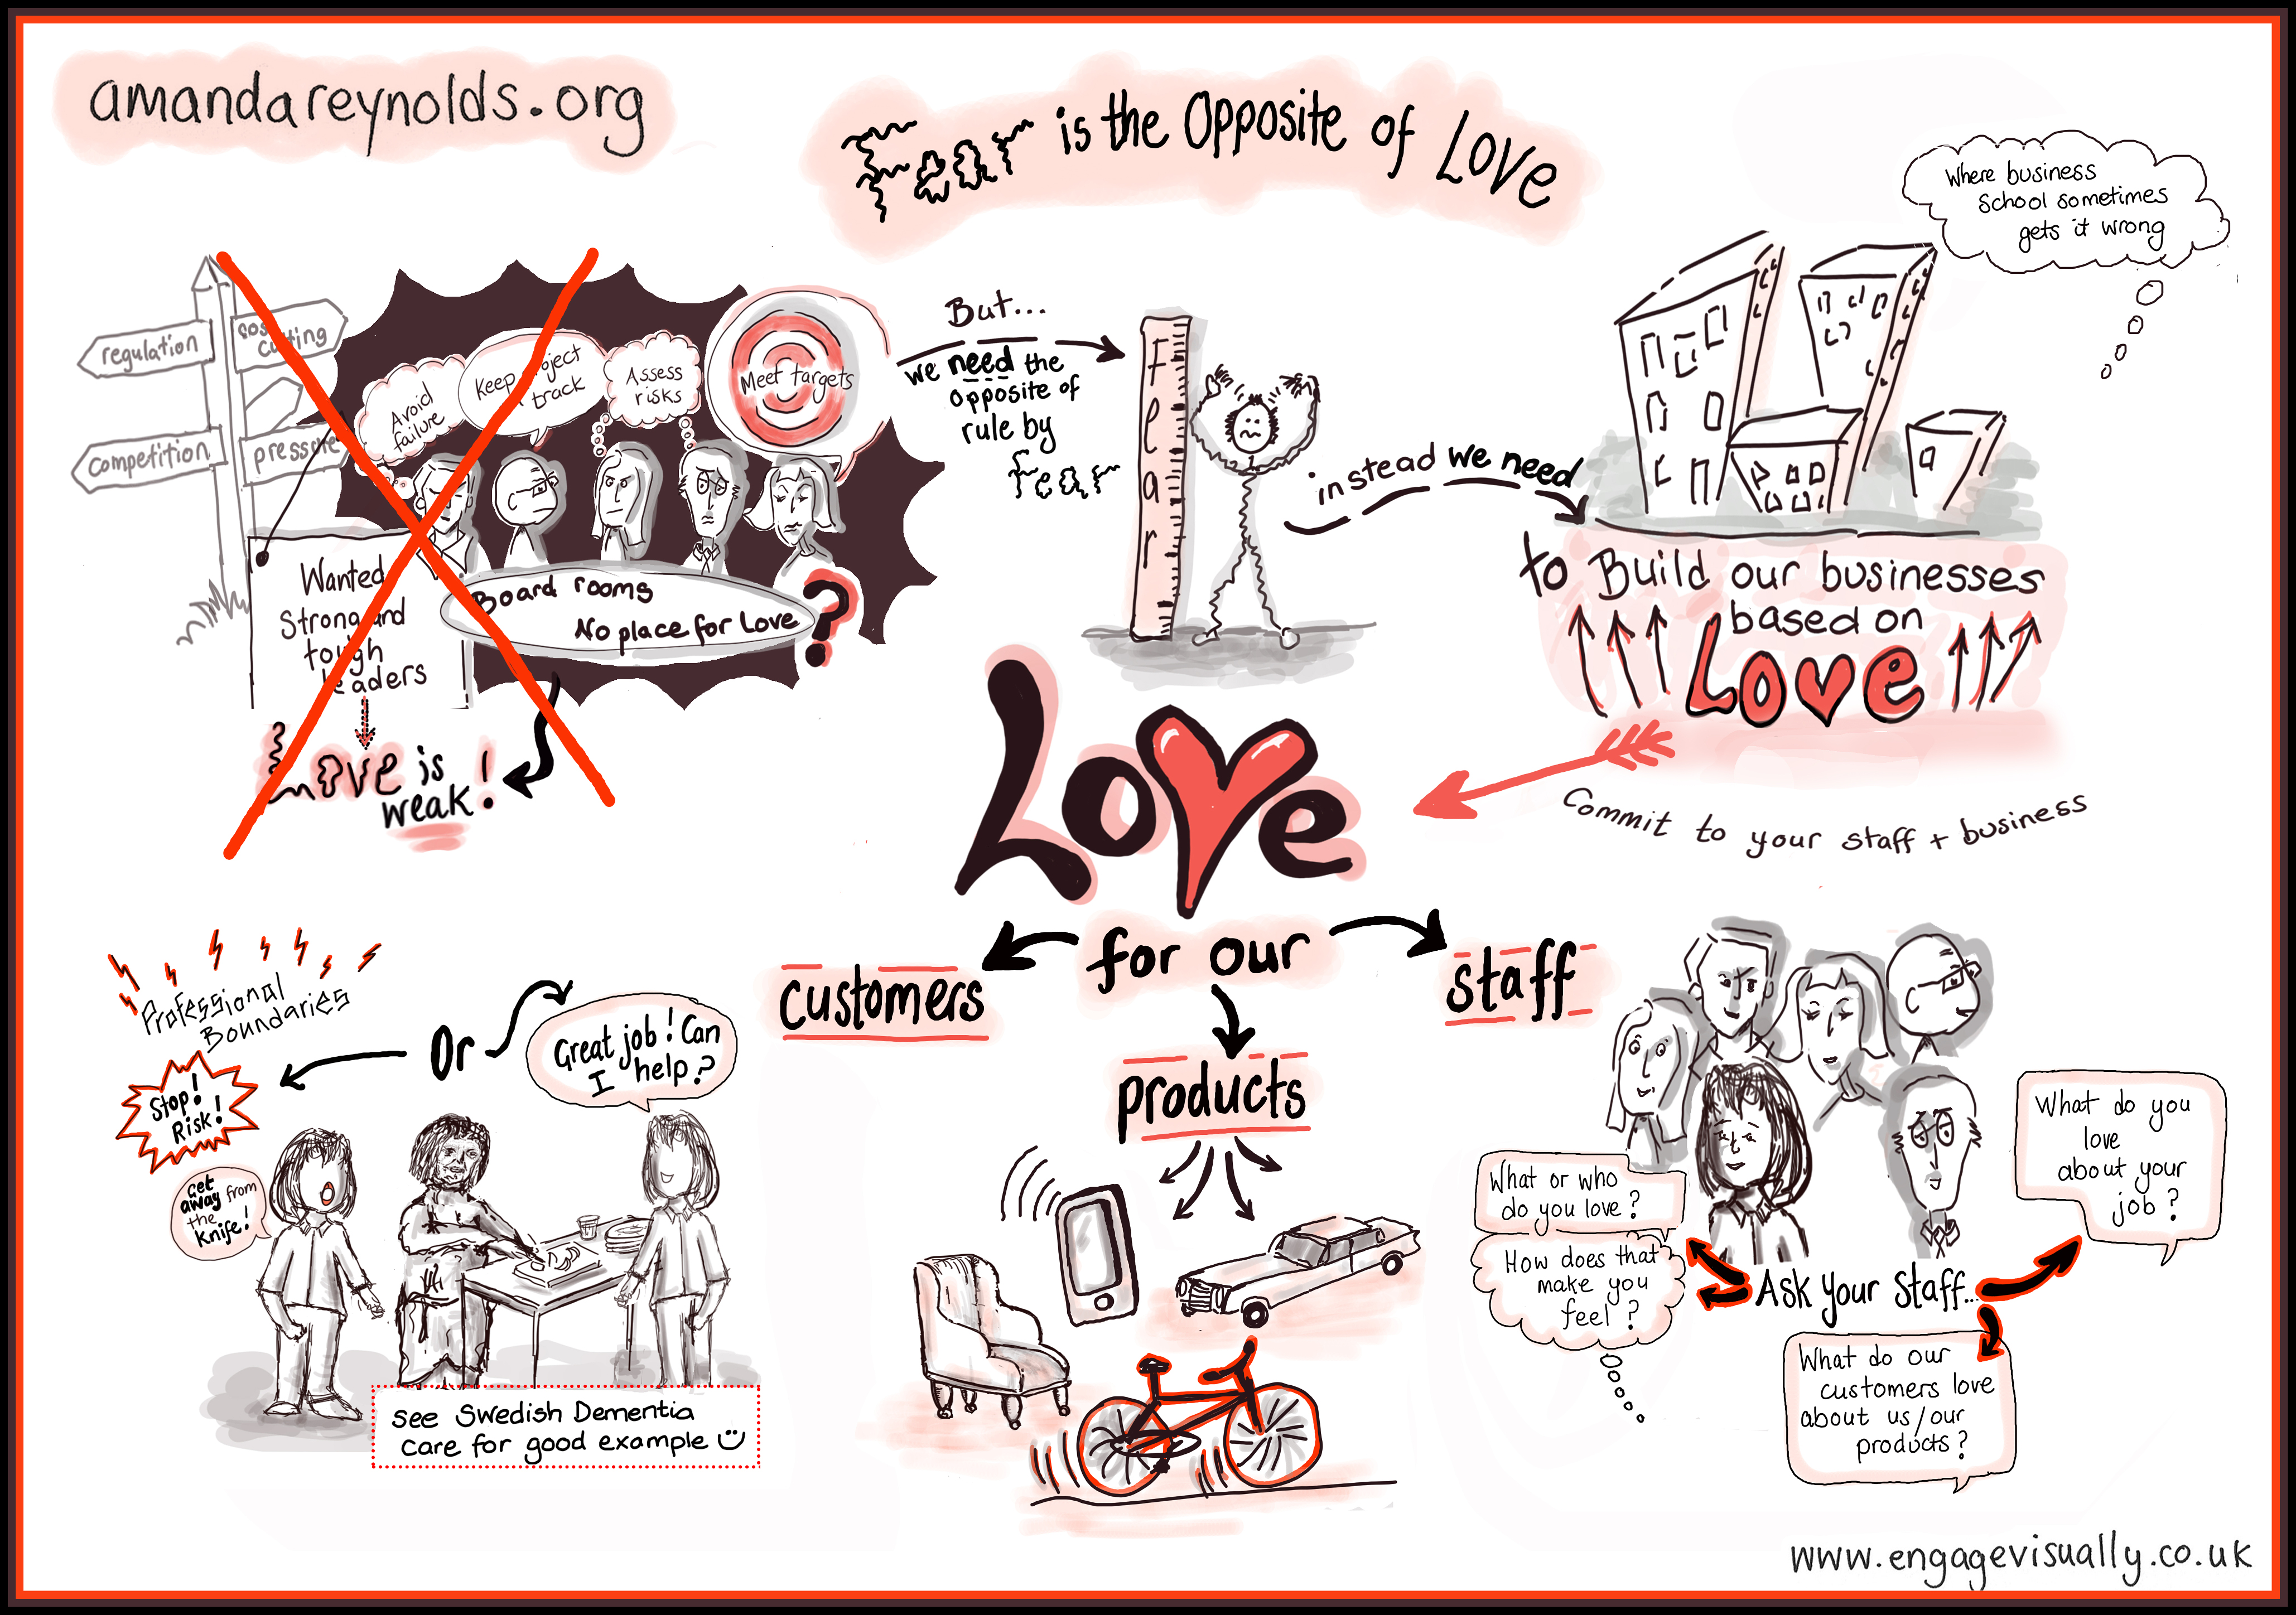 amandareynolds.org
Fear is the Opposite of Love
Where business
School sometimes
gets it wrong
regulation
cost
cutting
competition
pressure
Avoid
failure
Keep project
track
Assess
risks
Meet targets
Wanted
Strong and
tough
leaders
Board rooms
No place for Love
?
Love is
weak!
But...
we need the
opposite of
rule by
Fear
fear
instead we need
to Build our businesses
based on
Love
Commit to your staff + business
Love
for our
customers
products
staff
Professional
Boundaries
Or
Stop!
Risk!
Get
away from
the
Knife!
Great job! Can
I help?
see Swedish Dementia
care for good example
What or who
do you love?
How does that
make you
feel?
Ask your Staff...
What do you
love
about your
job?
What do our
customers love
about us/our
products?
www.engagevisually.co.uk